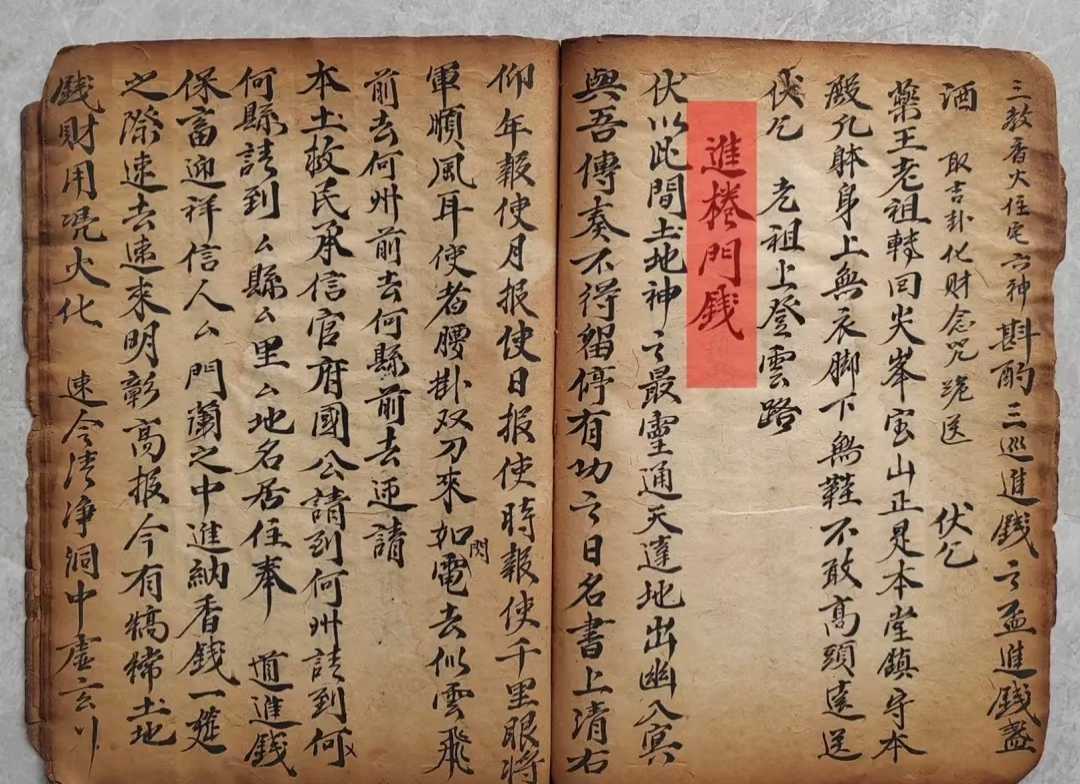 三教香火住宅六神 斟酌三巡進錢之盃進錢盞
酒 取吉卦化財念咒 送 伏乞
藥王老祖轉回火峯宝山正是本堂鎮守本
殿凡躰身上無衣脚下無鞋不敢高頭遠送
伏乞 老祖上登雲路
進 門錢
伏以此間土地神之最靈通天達地出幽入冥
與吾傳奏不得留停有功之日名書上清右
仰年報使月报使日报使時報使千里眼將
軍順風耳使者腰掛双刀來如閃電去似雲飛
前去何州前去何縣前去迊請
本土救民承信官府國公請到何州請到何
何縣請到厶縣厶里厶地名居住奉 道進錢
保畜迎祥信人厶門蘭之中進納香錢一筵
之際速去速來明彰高报今有犒 土地
錢財用凴火化 速令清净洞中虛玄